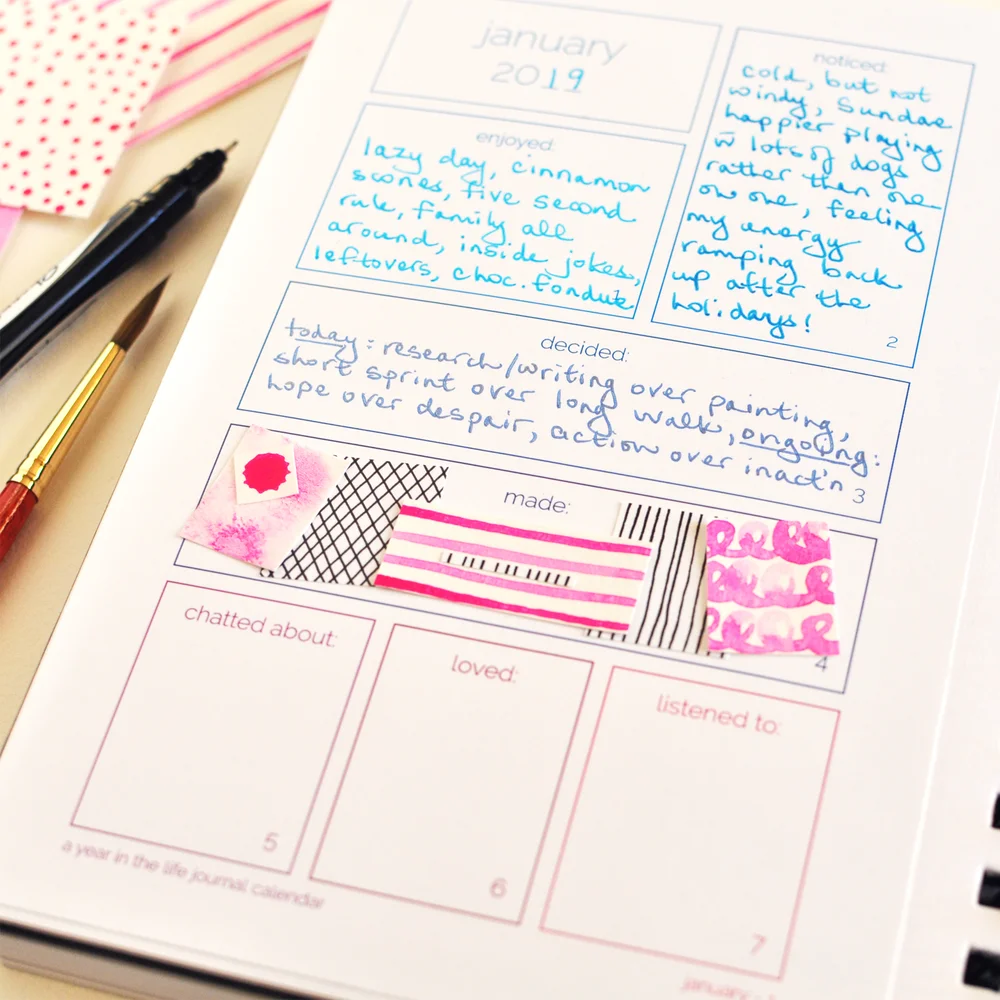 january
2019
enjoyed:
lazy day, cinnamon
scones, five second
rule, family all
around, inside jokes,
leftovers, choc. fondue
noticed:
cold, but not
windy, Sundae
happier playing
w̄ lots of dogs
rather than one
on one, feeling
my energy
ramping back
up after the
holidays!
2
decided:
today: research/writing over painting,
short sprint over long walk, ongoing:
hope over despair, action over inact'n
3
made:
4
chatted about:
5
loved:
6
listened to:
7
a year in the life journal calendar
january -